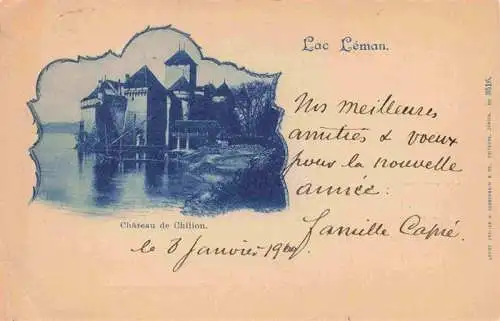 Lac Léman.
Nos meilleures
amitiés & voeux
pour la nouvelle
année.
famille
Château de Chillon.
le 3 Janvier